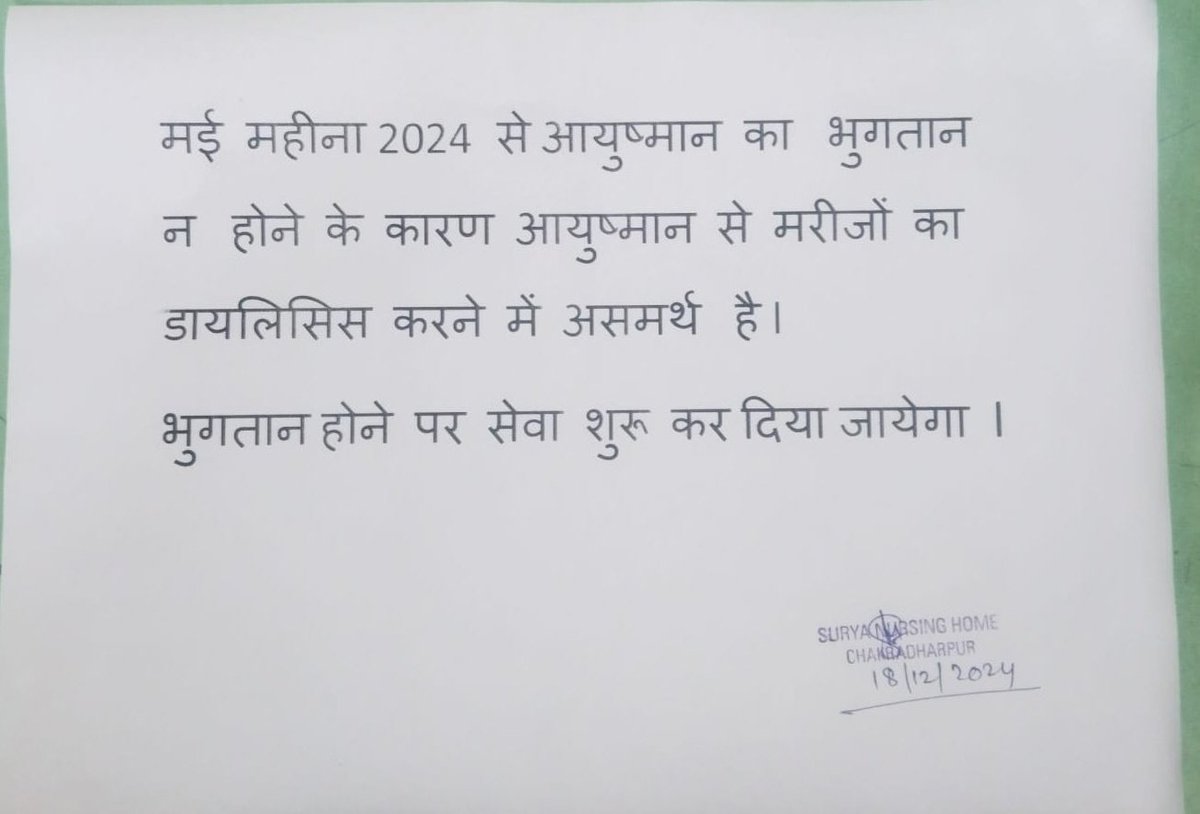 मई महीना 2024 से आयुष्मान का भुगतान
न होने के कारण आयुष्मान से मरीजों का
डायलिसिस करने में असमर्थ है।
भुगतान होने पर सेवा शुरू कर दिया जायेगा ।
SURYA NURSING HOME
CHAKRADHARPUR
18/12/2024